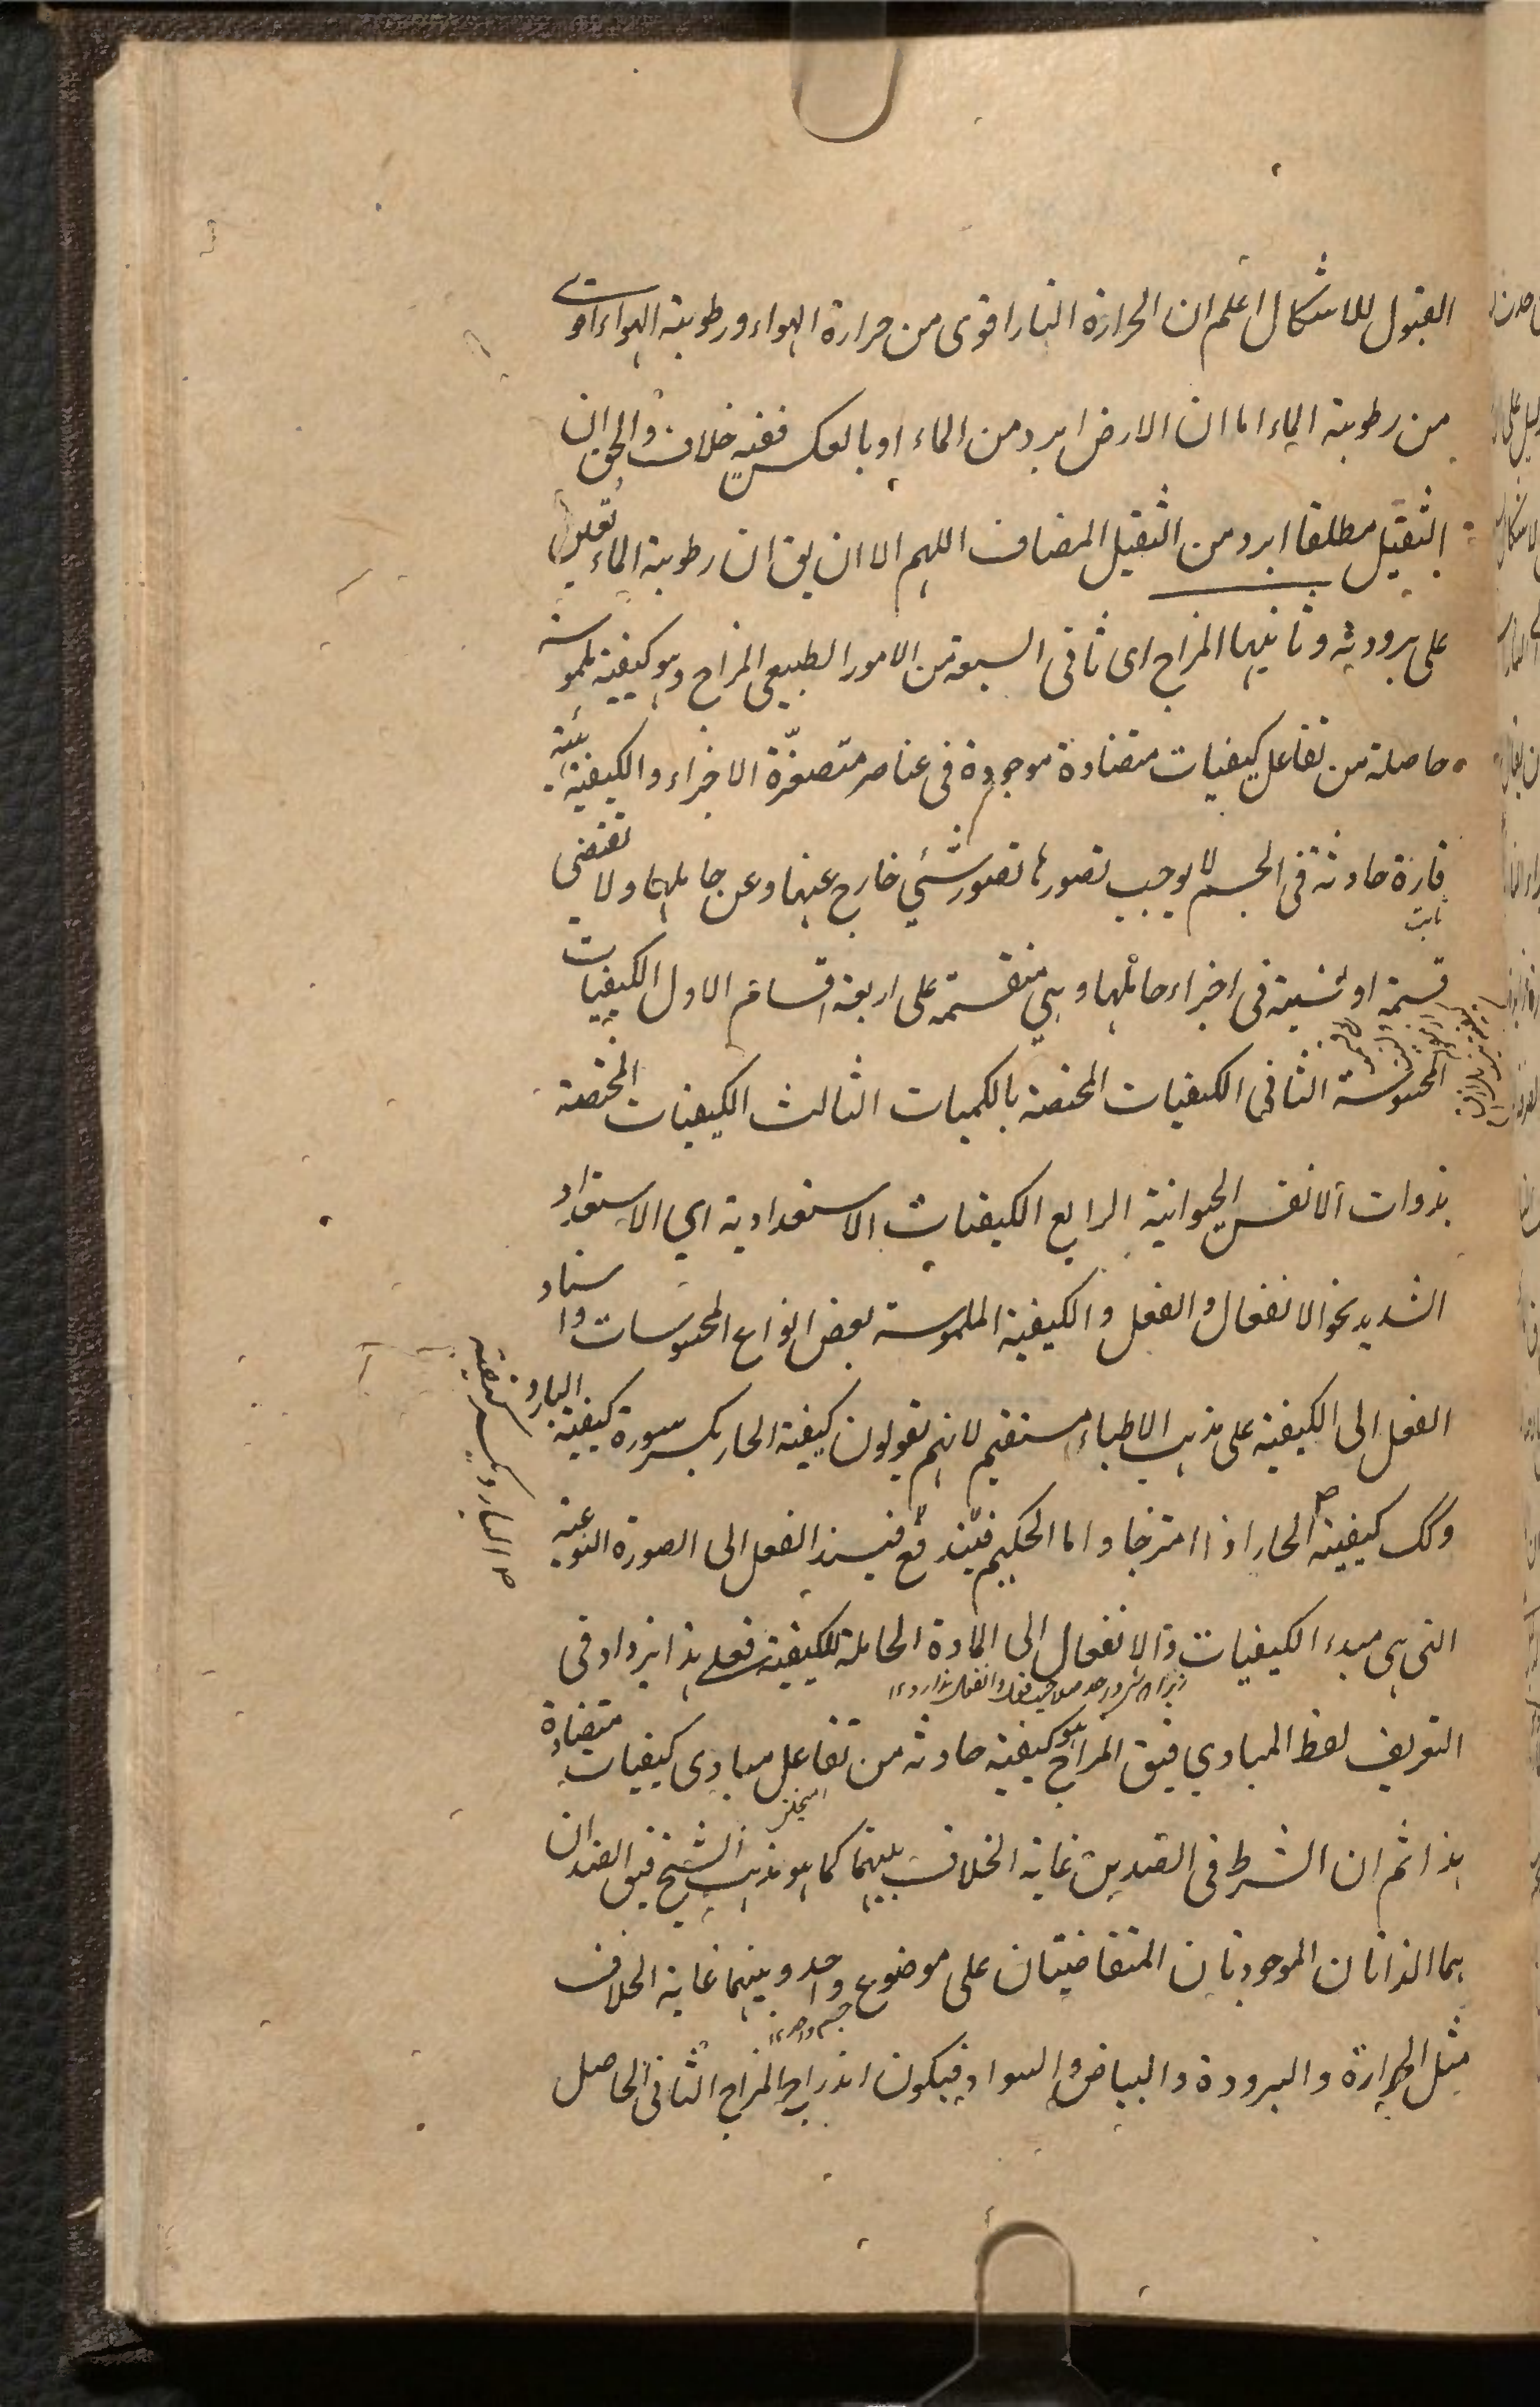 القبول للاشكال اعلم ان الحرارة النار اقوى من حرارة الهواء ورطوبته الهواء اقوى
من رطوبة الماء اما ان الارض ابرد من الماء او بالعكس ففيه خلاف والحق ان
الثقيل مطلقا ابرد من الثقيل المضاف اللهم الا ان يق ان رطوبة الماء تعين
على برودته وثانيها المزاج اى ثانى السبعة من الامور الطبيعى المزاج وهو كيفية ملموسة
حاصلة من تفاعل كيفيات متضادة موجودة فى عناصر متصغرة الاجزاء والكيفية هيئة
قارة حادثة فى الجسم لا يوجب تصورها تصور شئ خارج عنها وعن حاملها ولا تقتضى
ثابت
قسمة او نسبة فى اجزاء حاملها وهى منقسمة على اربعة اقسام الاول الكيفيات
المحسوسة الثانى الكيفيات المختصة بالكميات الثالث الكيفيات المختصة
بذوات الانفس الحيوانية الرابع الكيفيات الاستعدادية اي الاستعداد
الشديد نحو الانفعال والفعل والكيفية الملموسة بعض انواع المحسوسات واسناد
الفعل الى الكيفية على مذهب الاطباء مستقيم لانهم يقولون كيفية الحار يكسر سورة كيفية البارد
وكك كيفية الحار اذا امتزجا واما الحكيم فيسند الفعل الى الصورة النوعية
التى هى مبدء الكيفيات والانفعال الى المادة الحاملة للكيفية فعلى هذا يزداد فى
التعريف لفظ المبادي فيق المزاج هو كيفية حادثة من تفاعل مبادى كيفيات متضادة
هذا ثم ان الشرط فى الضدين غاية الخلاف بينهما كما هو مذهب الشيخ فيق الضدان
هما الذاتان الموجودتان المتعاقبتان على موضوع واحد وبينهما غاية الخلاف
جسم واحد ١٢
مثل الحرارة والبرودة والبياض والسواد فيكون اندراج المزاج الثانى الحاصل